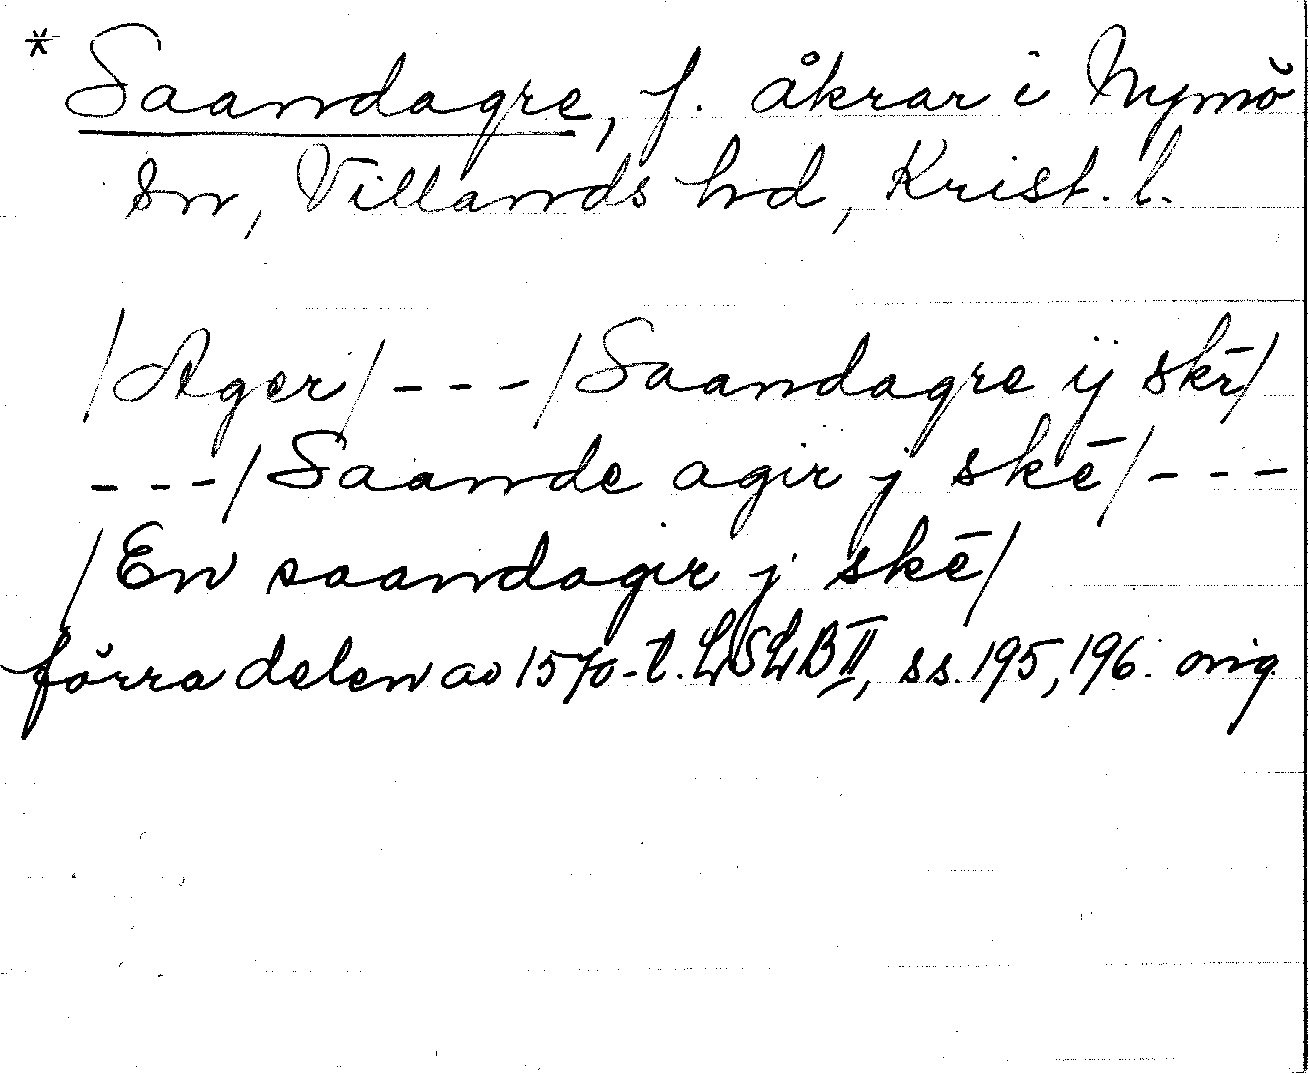 * Saandagre, f. åkrar i Nymö
sn, Villands hd, Krist. l.
/Ager/ - - - /Saandagre ij skr̄/
- - -/Saande agir j skē/- - -
/En saandagir j skē/
förra delen av 1570-t. LSLB II, ss. 195, 196. orig.